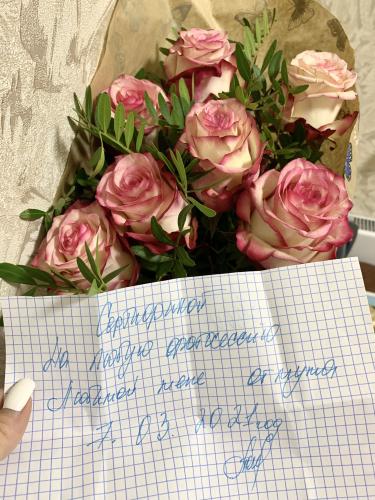 Сертификат
На любую фотосессию
Любимой жене от мужа
7. 03. 2021 год